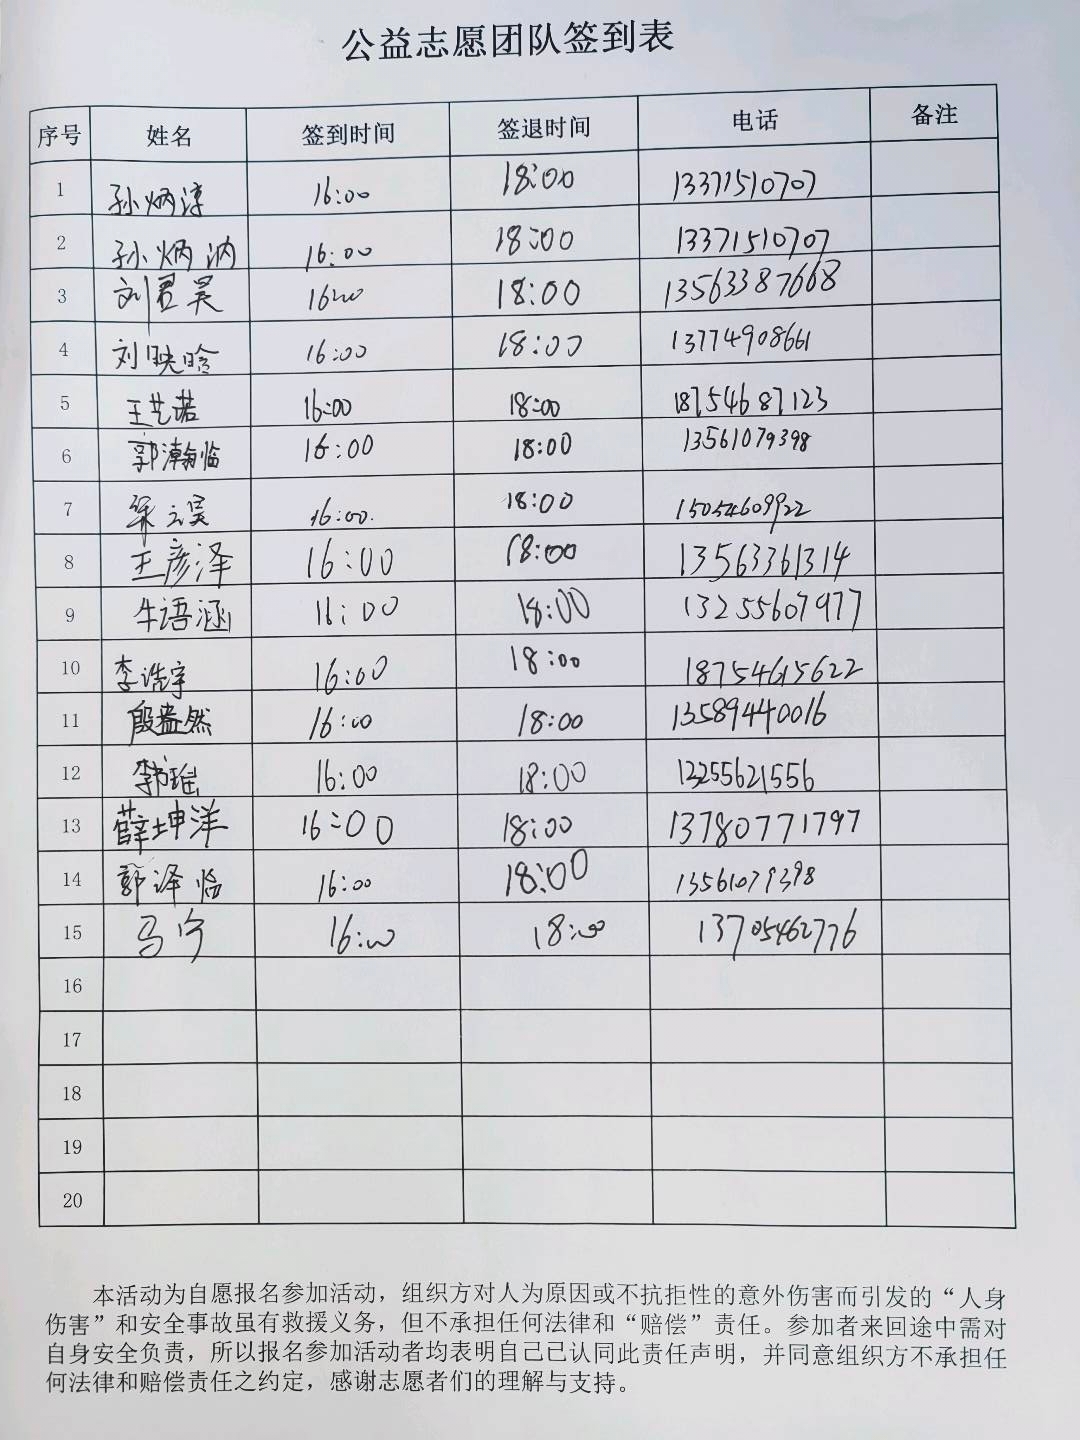 公益志愿团队签到表
序号 姓名 签到时间 签退时间 电话 备注
1 孙炳淳 16:00 18:00 13371510707
2 孙炳汭 16:00 18:00 13371510707
3 刘君昊 16:00 18:00 13563387668
4 刘映晗 16:00 18:00 13774908661
5 王艺诺 16:00 18:00 18754687123
6 郭瀚临 16:00 18:00 13561079398
7 16:00. 18:00 15054609922
8 王彦泽 16:00 18:00 13563361314
9 牛语涵 16:00 18:00 13255607977
10 李浩宇 16:00 18:00 18754615622
11 殷益然 16:00 18:00 13589440016
12 16:00 18:00 13255621556
13 薛坤洋 16:00 18:00 13780771797
14 郭泽临 16:00 18:00 13561079398
15 马宁 16:00 18:00 13705462776
16
17
18
19
20
本活动为自愿报名参加活动，组织方对人为原因或不抗拒性的意外伤害而引发的“人身
伤害”和安全事故虽有救援义务，但不承担任何法律和“赔偿”责任。参加者来回途中需对
自身安全负责，所以报名参加活动者均表明自己已认同此责任声明，并同意组织方不承担任
何法律和赔偿责任之约定，感谢志愿者们的理解与支持。